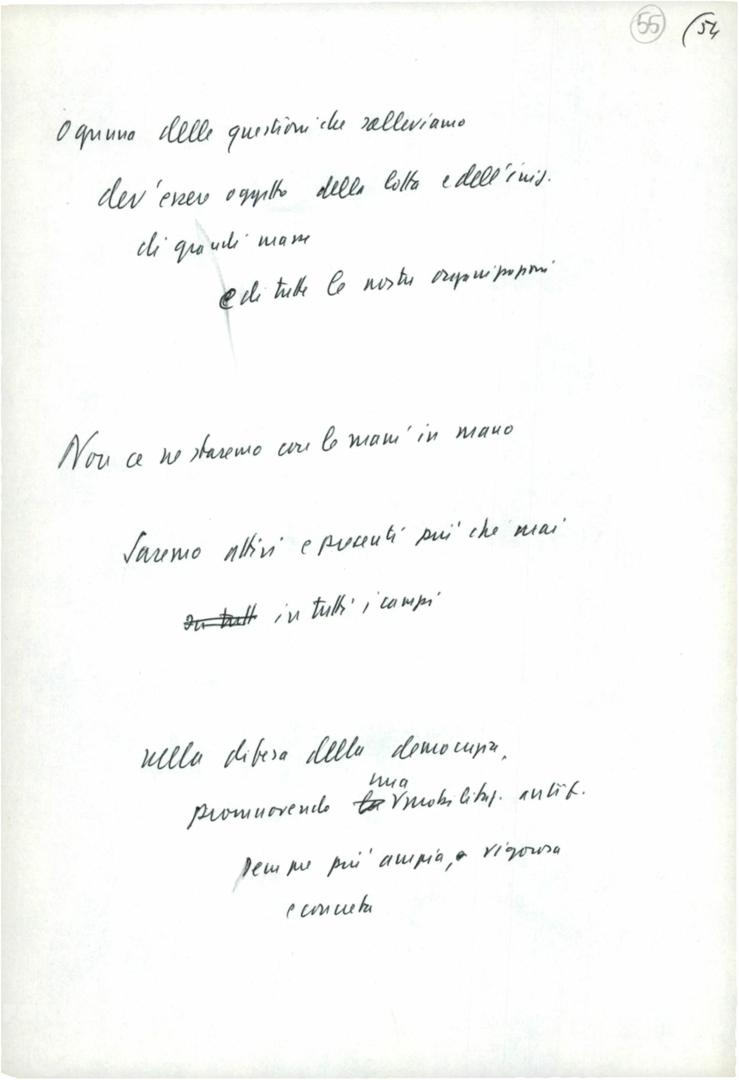 55 (54
Ognuno delle questioni che solleviamo
dev'essere oggetto della lotta e dell'iniz.
di grandi masse
e di tutte le nostre organizzazioni
Non ce ne staremo con le mani in mano
Saremo attivi e presenti più che mai
in tutt in tutti i campi
nella difesa della democrazia,
una
promuovendo la mobilitaz. antif.
sempre più ampia, e vigorosa
e concreta